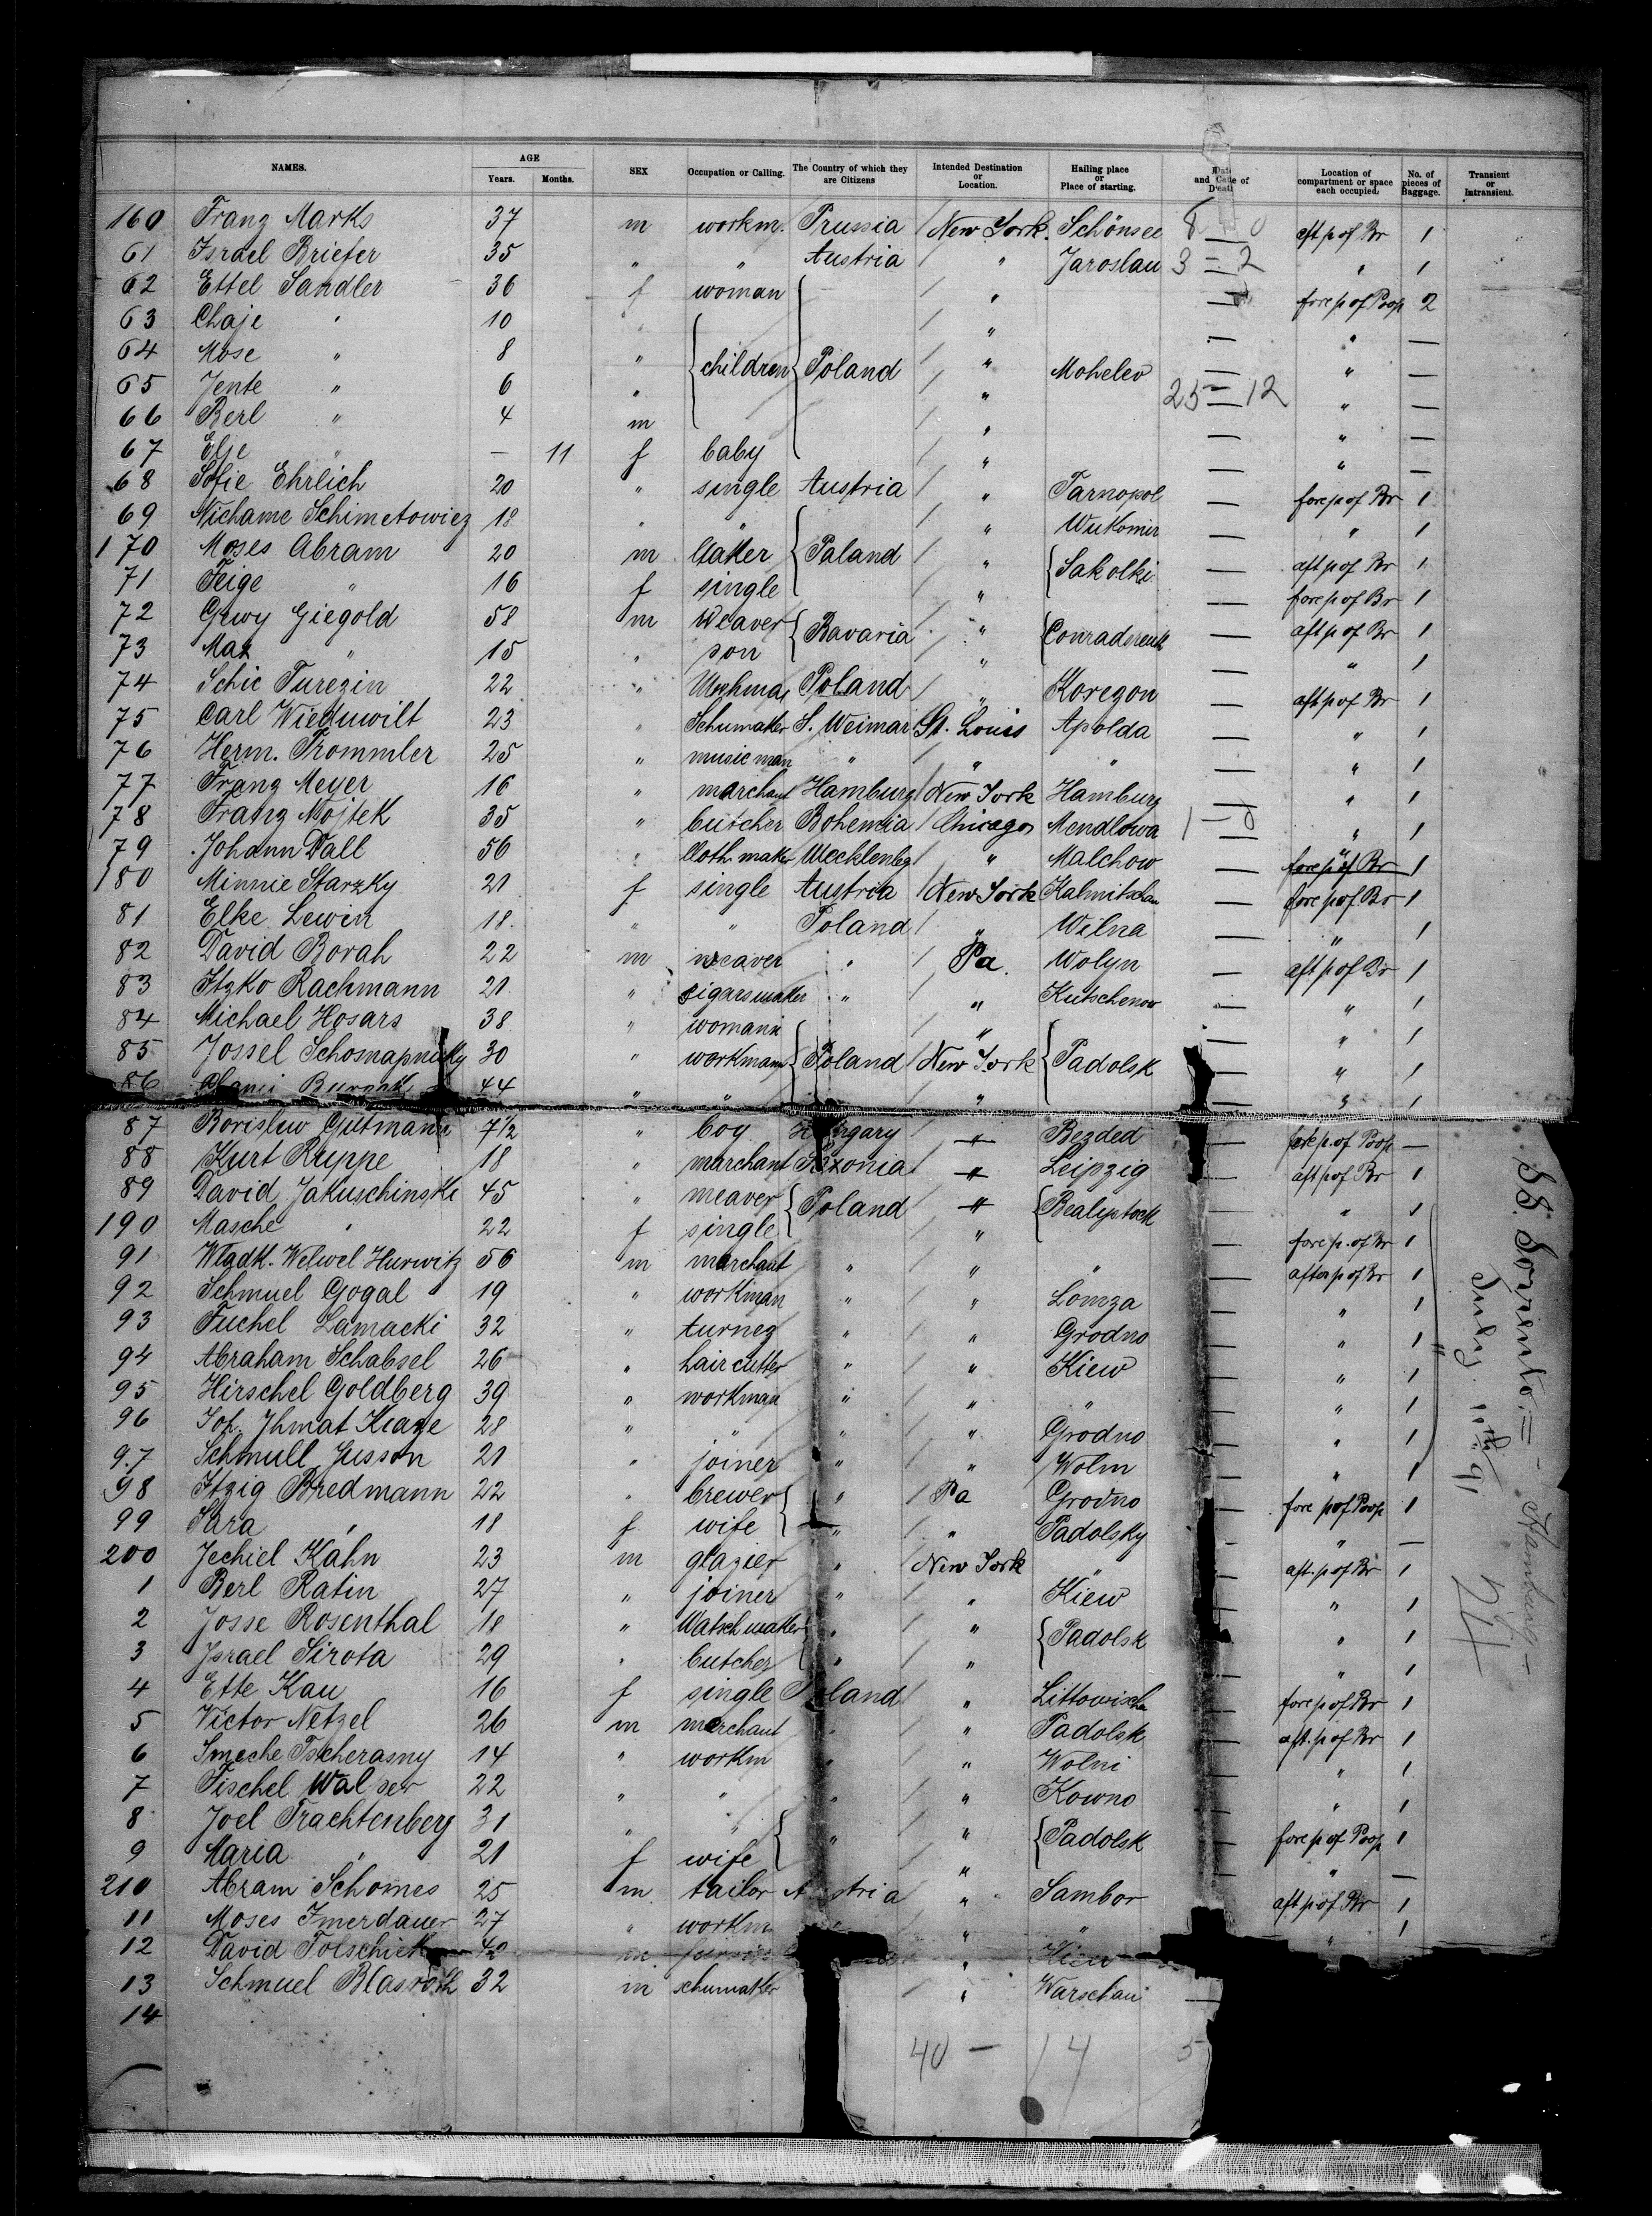 NAMES. AGE Years. Months. SEX Occupation or Calling. The Country of which they are Citizens Intended Destination or Location. Hailing place or Place of starting. Date and Cause of Death Location of compartment or space each occupied. No. of pieces of Baggage. Transient or Intransient.
160 Franz Marks 37 m workm. Prussia / New York. Schönsee 8 — 0 aft p of Br 1
61 Israel Briefer 35 " " Austria / " Jaroslau 3 = 2 " 1
62 Ettel Sandler 36 f woman / " — fore p of Poop 2
63 Chaje " 10 " / " — " —
64 Mose " 8 " children Poland / " Mohelev — " —
65 Jente " 6 " / " 25 = 12 " —
66 Berl " 4 m / " — " —
67 Elje " — 11 f baby / " — " —
68 Sofie Ehrlich 20 " single Austria / " Tarnopol — fore p of Br 1
69 Nichame Schimetowiez 18 " " / " Wukomir — " 1
170 Moses Abram 20 m Paland / " Sakolki — aft p of Br 1
71 Feige " 16 f single / " — fore p of Br 1
72 Giegold 58 m Weaver Bavaria " — aft p of Br 1
73 Max " 15 " son " — " 1
74 Schie Turezin 22 " Poland / " Koregon — aft p of Br 1
75 Carl Wieduwilt 23 " Schumaker S. Weimar St. Louis Apolda — " 1
76 Herm. Trommler 25 " music man " " " — " 1
77 Franz Meyer 16 " marchant Hamburg / New York Hamburg — " 1
78 Franz Nojtek 35 " butcher Bohemia / Chicago Mendlowa 1 — " 1
79 Johann Dall 56 " Cloth maker Mecklenbg / " Malchow — fore p of Br 1
180 Minnie Starzky 21 f single Austria / New York — fore p of Br 1
81 Elke Lewin 18. " " Poland / " Wilna — " 1
82 David Borah 22 m weaver " / Pa. Wolyn — aft p of Br 1
83 Itzko Rachmann 21 " cigarsmaker " / " Kutschenow — " 1
84 Michael Hosars 38 " womann / " — " 1
85 Jossel 30 " workmann Poland / New York Padolsk — " 1
86 44 " " " — " 1
87 Borislew Gutmann 7/12 " boy Hungary / " Bezded — fore p. of Poop —
88 Kurt Ruppe 18 " marchant Saxonia / " Leipzig — aft p of Br 1
89 David Jakuschinski 45 " weaver Poland / " Bealystock — " 1
190 Masche " 22 f single / " — fore p. of Br 1
91 Wladk. Welwel Hurwitz 56 m marchant " / " " — after p of Br 1
92 Schmuel Gogal 19 " workman " / " Lomza — " 1
93 Fuchel Lamacki 32 " turnez " / " Grodno — " 1
94 Abraham Schabsel 26 " haircutter " / " Kiew — " 1
95 Hirschel Goldberg 39 " workman " / " " — " 1
96 Joh. Ihmat 28 " " " / " Grodno — " 1
97 Schmull Jusson 21 " joiner " / " Wolm — " 1
98 Itzig Bredmann 22 " brewer " / Pa Grodno — fore p of Poop 1
99 Sara " 18 f wife " / " Padolsky — " —
200 Jechiel Kahn 23 m glazier " New York " — aft. p of Br 1
1 Berl Ratin 27 " joiner " / " Kiew — " 1
2 Josse Rosenthal 18 " Watschmaker " / " Padolsk — " 1
3 Israel Sirota 29 " butcher " / " — " 1
4 Ette Kau 16 f single Poland / " — fore p of Br 1
5 Victor Netzel 26 m merchant " / " Padolsk — aft. p of Br 1
6 Smeche Tscherasny 14 " workm " / " Wolni — " 1
7 Fischel Walser 22 " " " / " Kowno — " 1
8 Joel Trachtenberg 31 " " " / " Padolsk — fore p of Poop 1
9 Maria " 21 f wife / " — " —
210 Abram Schomes 25 m. tailor Austria " Sambor — aft p of Br 1
11 Moses 27 " workm " / " " " 1
12 David Tolschick 42 m "
13 Schmuel Blasroth 32 m schumaker / " Warschau —
14
40 — 14 5
SS. Sorrento = - Hamburg -
July 11th 91
24